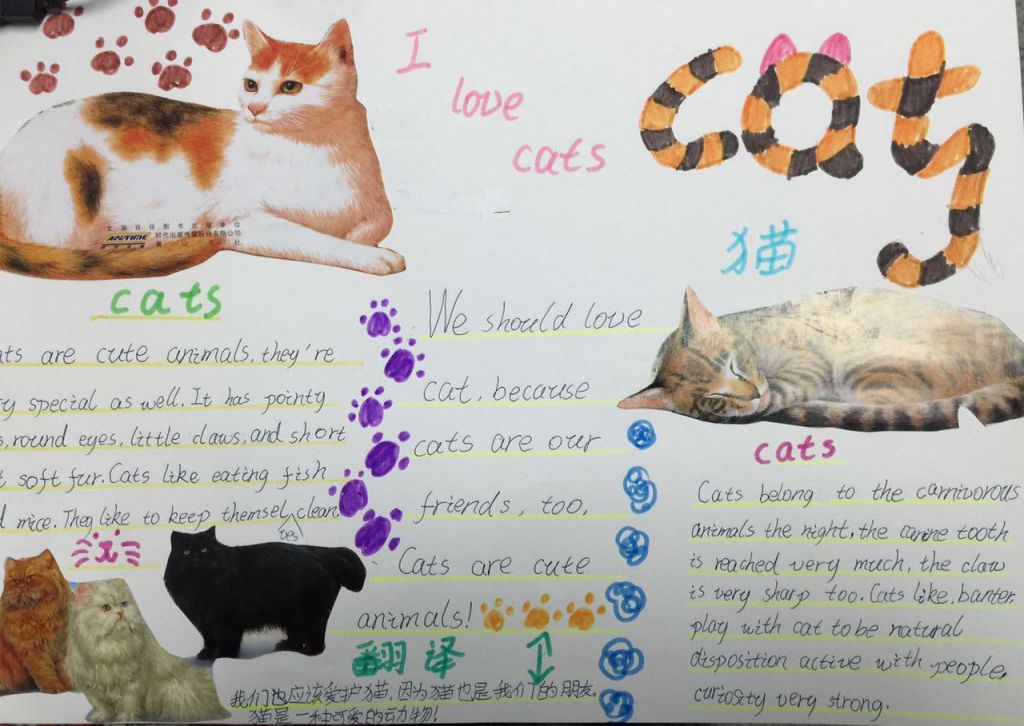 I
love
cats
cats
猫
全国百佳图书出版单位
APGTIME 时代出版传媒股份有限公司
黄山书社
cats
ats are cute animals, they're
ry special as well. It has pointy
s, round eyes, little claws, and short
t soft fur. Cats like eating fish
d mice. They like to keep themselves clean.
We should love
cat, because
cats are our
friends, too.
Cats are cute
animals!
翻译
我们也应该爱护猫,因为猫也是我们的朋友。
猫是一种可爱的动物!
cats
Cats belong to the carnivorous
animals the night, the canine tooth
is reached very much, the claw
is very sharp too. Cats like, banter
play with cat to be natural
disposition active with people,
curiosity very strong.